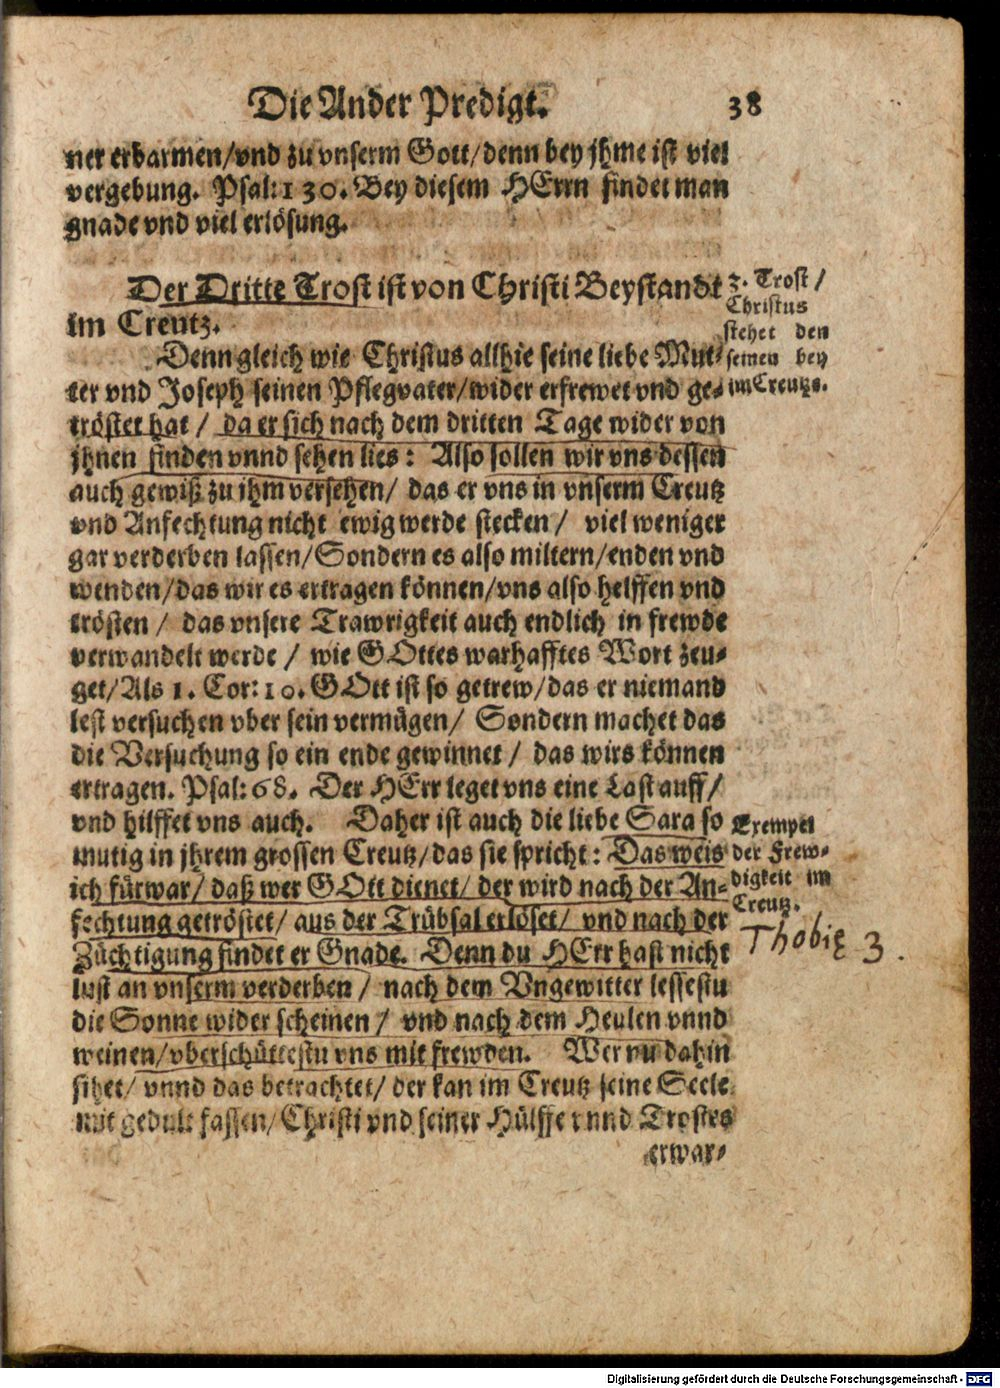 Die Ander Predigt. 38
ner erbarmen/vnd zu vnserm Gott/denn bey jhme ist viel
vergebung. Psal: 130. Bey diesem HErrn findet man
gnade vnd viel erlösung.
Der Dritte Trost ist von Christi Beystandt
im Creutz.
3. Trost /
Christus
stehet den
seinen bey
im Creutze.
Denn gleich wie Christus allhie seine liebe Mut-
ter vnd Joseph seinen Pflegvater/wider erfrewet vnd ge-
tröstet hat / da er sich nach dem dritten Tage wider von
jhnen finden vnnd sehen lies: Also sollen wir vns dessen
auch gewiß zu jhm versehen/ das er vns in vnserm Creutz
vnd Anfechtung nicht ewig werde stecken/ viel weniger
gar verderben lassen/Sondern es also miltern/enden vnd
wenden/das wir es ertragen können/vns also helffen vnd
trösten / das vnsere Trawrigkeit auch endlich in frewde
verwandelt werde / wie GOttes warhafftes Wort zeu-
get/Als 1. Cor: 10. GOtt ist so getrew/das er niemand
lest versuchen vber sein vermügen/ Sondern machet das
die Versuchung so ein ende gewinnet / das wirs können
ertragen. Psal: 68. Der HErr leget vns eine Last auff/
vnd hilffet vns auch. Daher ist auch die liebe Sara so
mutig in jhrem grossen Creutz/das sie spricht: Das weis
ich fürwar/ daß wer GOtt dienet/ der wird nach der An-
fechtung getröstet/ aus der Trübsal erlöset/ vnd nach der
Züchtigung findet er Gnade. Denn du HErr hast nicht
lust an vnserm verderben / nach dem Vngewitter lessestu
die Sonne wider scheinen / vnd nach dem Heulen vnnd
weinen/vberschüttestu vns mit frewden. Wer nu dahin
sihet/ vnnd das betrachtet/ der kan im Creutz seine Seele
mit gedult fassen/Christi vnd seiner Hülffe vnnd Trostes
erwar-
Exempel
der Frew-
digkeit im
Creutz.
Thobię 3.
Digitalisierung gefördert durch die Deutsche Forschungsgemeinschaft - DFG